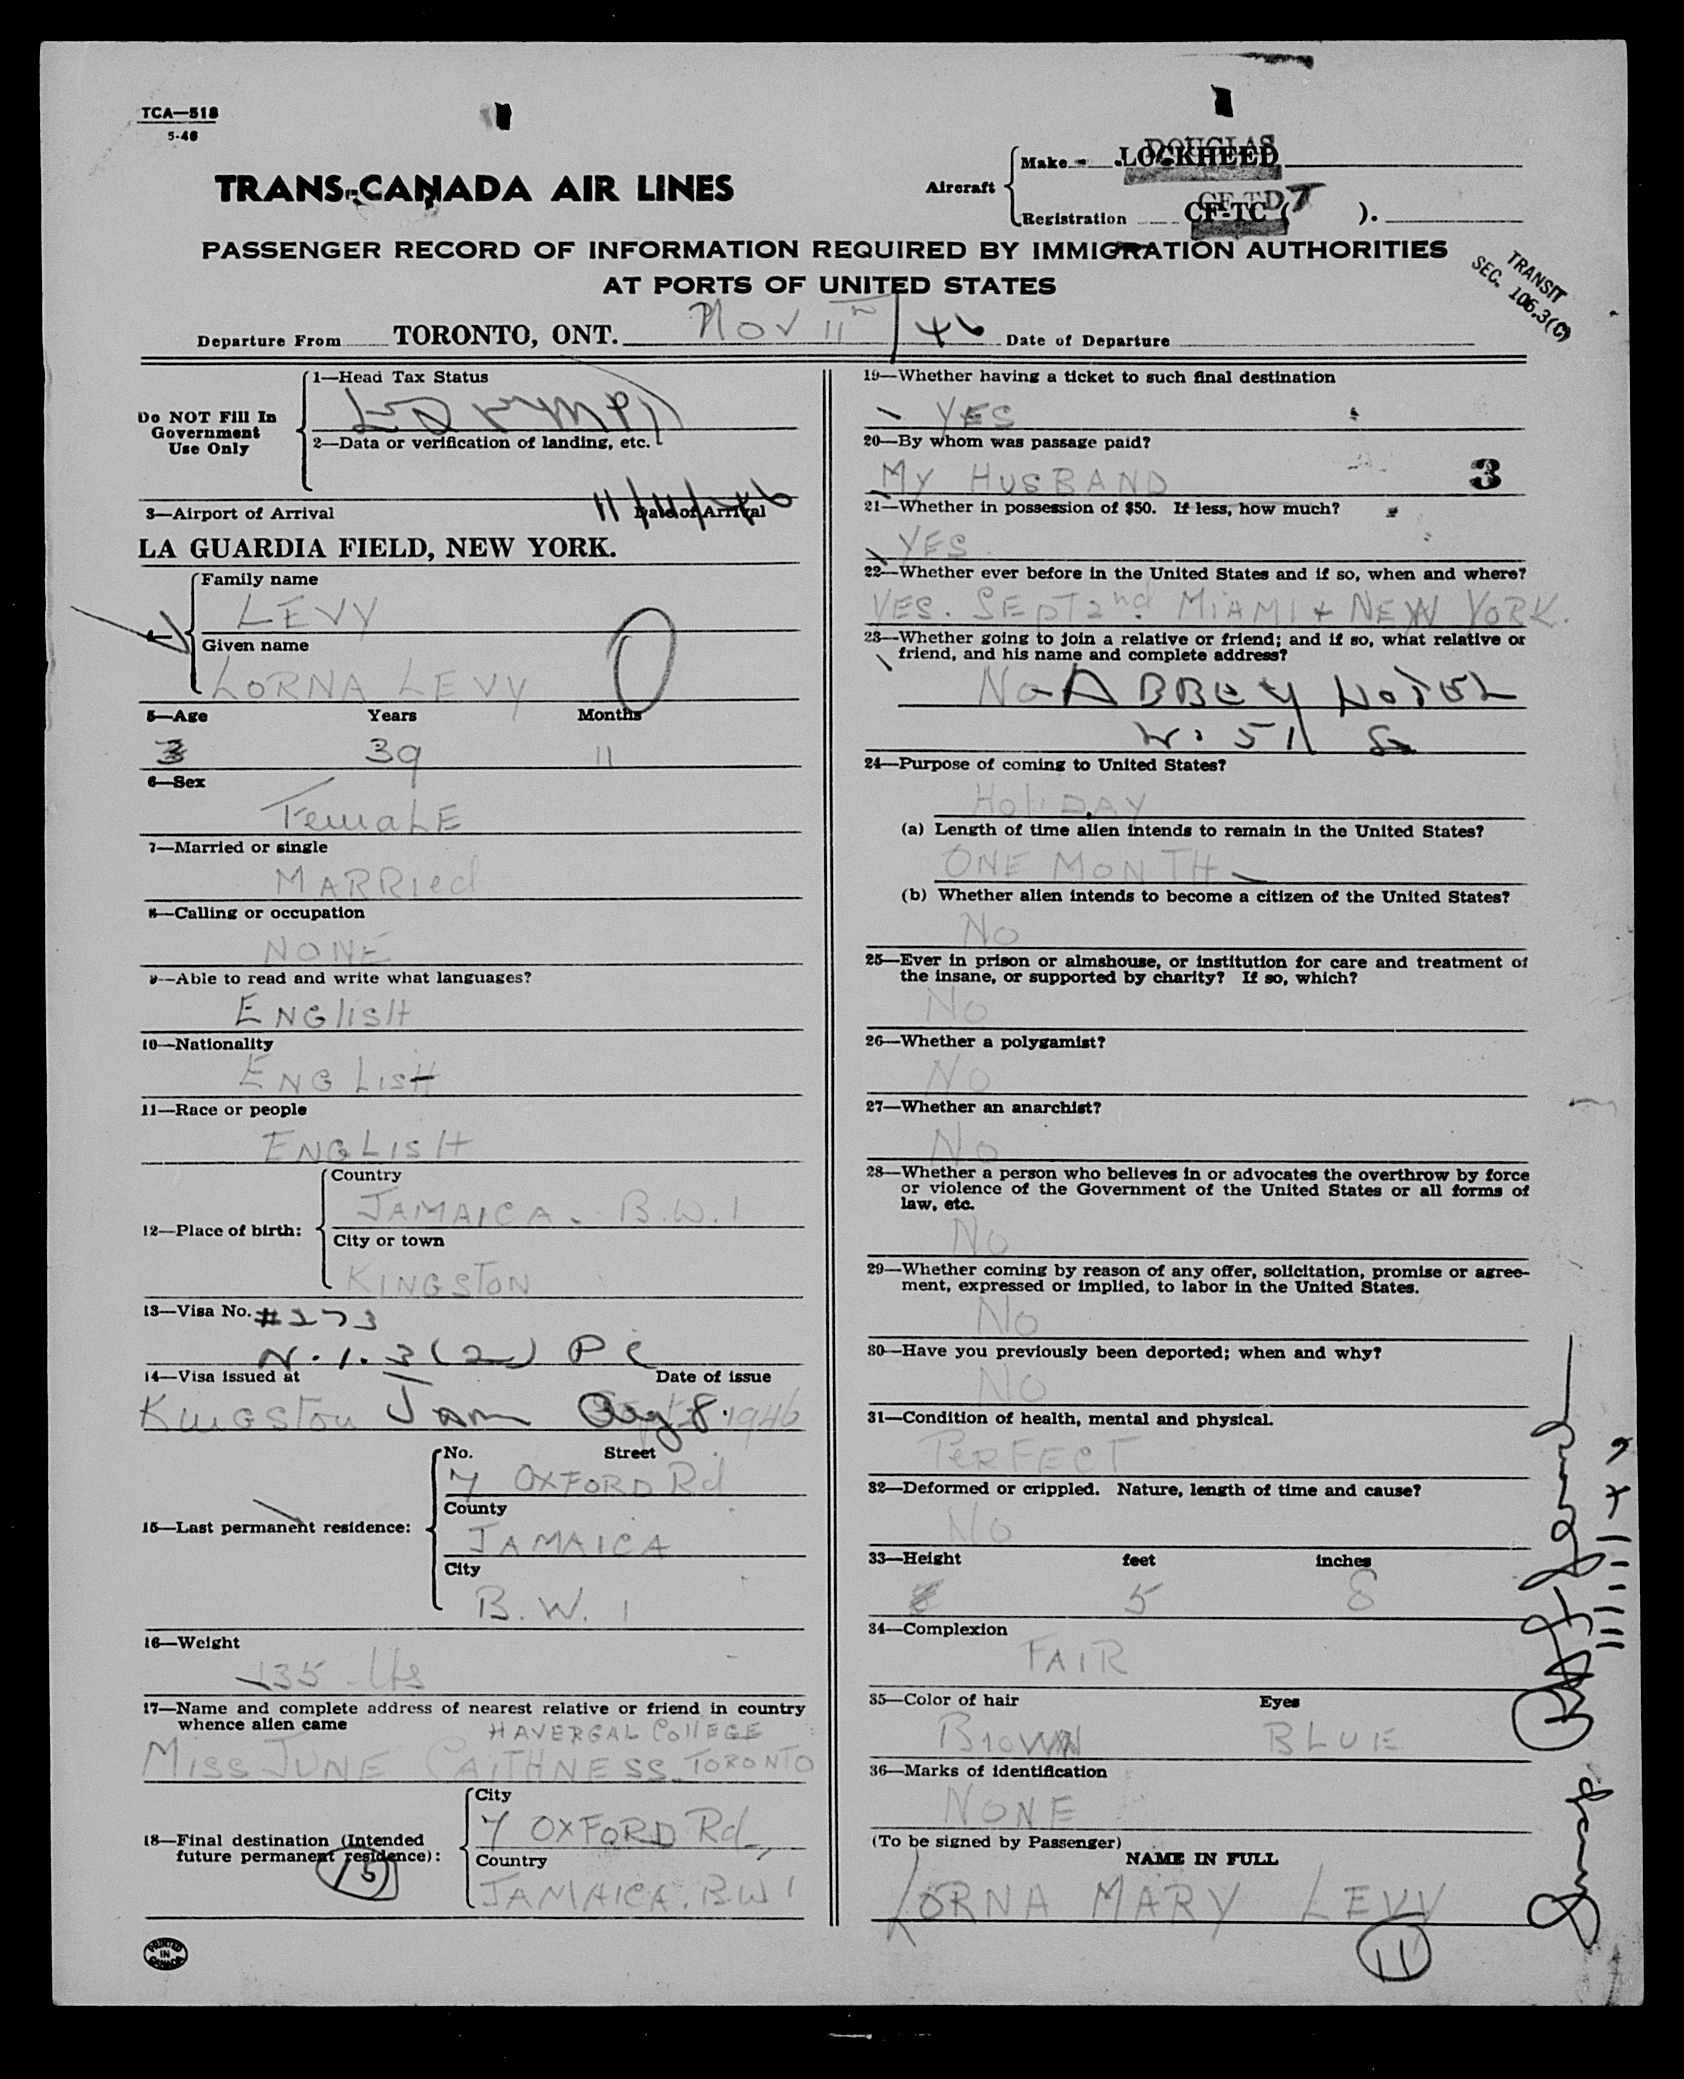 TCA—518
5-46
TRANS-CANADA AIR LINES
Aircraft
Make
DOUGLAS
LOCKHEED
Registration
CF-TD T
CF-TC ( ).
PASSENGER RECORD OF INFORMATION REQUIRED BY IMMIGRATION AUTHORITIES
AT PORTS OF UNITED STATES
TRANSIT
SEC. 106.3(C)
Departure From TORONTO, ONT. Nov 11 / 46 Date of Departure
Do NOT Fill In
Government
Use Only
1—Head Tax Status
2—Data or verification of landing, etc.
11/11/46
3—Airport of Arrival Date of Arrival
LA GUARDIA FIELD, NEW YORK.
Family name
LEVY
Given name
LORNA LEVY
5—Age Years Months
39 11
6—Sex
FemaLE
7—Married or single
MARRIed
8—Calling or occupation
NONE
9—Able to read and write what languages?
ENGlISH
10—Nationality
ENGLISH
11—Race or people
ENGLISH
12—Place of birth:
Country
JAMAICA. B.W.I
City or town
KINGSTON
13—Visa No. #273
N.I. 3(2) PC
14—Visa issued at Date of issue
KINGSTON Jam Aug 8. 1946
15—Last permanent residence:
No. Street
7 OXFORD Rd
County
JAMAICA
City
B.W.I
16—Weight
135 lbs
17—Name and complete address of nearest relative or friend in country
whence alien came
HAVERGAL COllEGE
MISS JUNE CAITHNESS TORONTO
18—Final destination (Intended
future permanent residence):
City
7 OXFORD Rd,
Country
JAMAICA. B.W I
15
PRINTED
IN
CANADA
19—Whether having a ticket to such final destination
YES
20—By whom was passage paid?
MY HUSBAND
3
21—Whether in possession of $50. If less, how much?
YES
22—Whether ever before in the United States and if so, when and where?
YES. SEPT 2nd MIAMI + NEW YORK.
23—Whether going to join a relative or friend; and if so, what relative or
friend, and his name and complete address?
No - ABBEY HOTEL
W. 51 St
24—Purpose of coming to United States?
HoliDAY
(a) Length of time alien intends to remain in the United States?
ONE MONTH
(b) Whether alien intends to become a citizen of the United States?
No
25—Ever in prison or almshouse, or institution for care and treatment of
the insane, or supported by charity? If so, which?
No
26—Whether a polygamist?
No
27—Whether an anarchist?
No
28—Whether a person who believes in or advocates the overthrow by force
or violence of the Government of the United States or all forms of
law, etc.
No
29—Whether coming by reason of any offer, solicitation, promise or agree-
ment, expressed or implied, to labor in the United States.
No
30—Have you previously been deported; when and why?
No
31—Condition of health, mental and physical.
PERFECT
32—Deformed or crippled. Nature, length of time and cause?
No
33—Height feet inches
5 8
34—Complexion
FAIR
35—Color of hair Eyes
BROWN BLUE
36—Marks of identification
NONE
(To be signed by Passenger)
NAME IN FULL
LORNA MARY LEVY
11